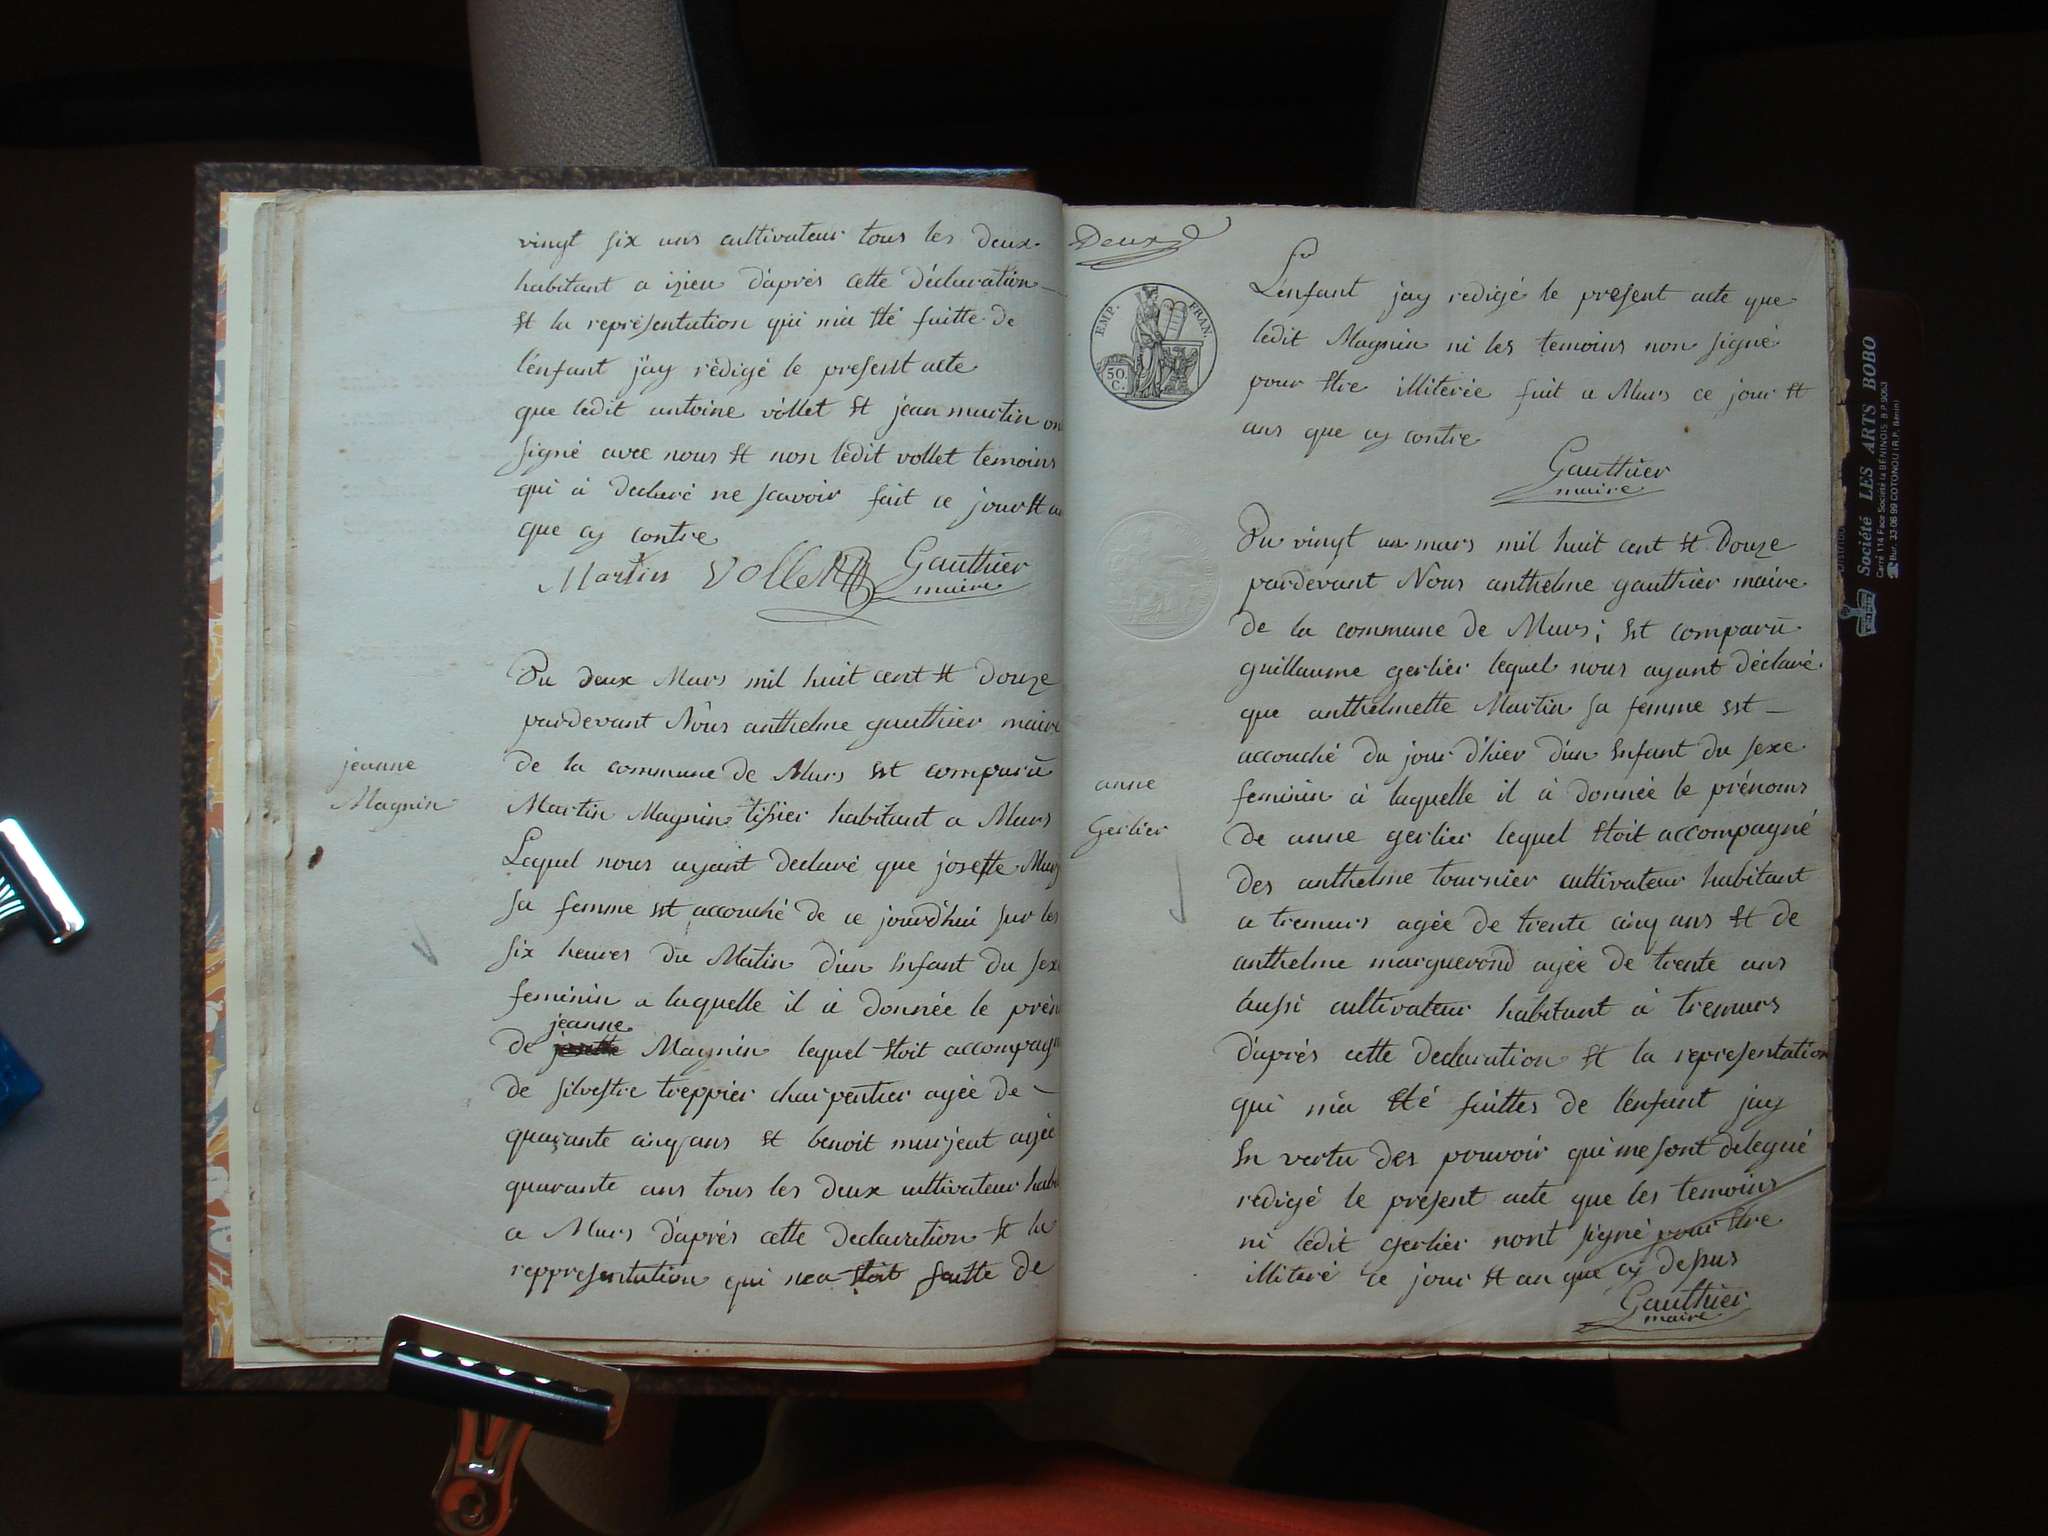 vingt six ans cultivateur tous les deux
habitant a izieu d'aprés cette déclaration
et la représentation qui m'a eté faitte de
l'enfant j'ay rédigé le present acte
que ledit antoine vollet et jean martin on
signé avec nous et non lédit vollet temoins
qui à declaré ne scavoir fait ce jour et an
que cy contre
Martin VOLLET Gauthier
maire
Du deux Murs mil huit cent et Douze
pardevant Nous anthelme gauthier maire
de la commune de Murs est comparu
Martin Magnin tissier habitant a Murs
Lequel nous ayant declaré que josette
sa femme est accouché de ce jourd'hui sur les
six heures du Matin d'un enfant du sexe
feminin a laquelle il à donnée le prén
jeanne
de Magnin lequel etoit accompagn
de silvestre treppier charpentier agée de
quarante cinq ans et benoit murjeat agée
quarante ans tous les deux cultivateur hab
a Murs d'aprés cette declaration et la
reppresentation qui nea etoit faitte de
jeanne
Magnin
Deux
EMP. FRAN.
50
C.
L'enfant jay redigé le present acte que
ledit Magnin ni les temoins non signé
pour etre illiterée fait a Murs ce jour et
ans que cy contre
Gauthier
maire
Du vingt un mars mil huit cent et Douze
pardevant Nous anthelme gauthier maire
de la commune de Murs; est comparu
guillaume gerlier lequel nous ayant déclaré
que anthelmette Martin sa femme est
accouché du jour d'hier d'un enfant du sexe
feminin à laquelle il à donnée le prénoms
de anne gerlier lequel etoit accompagné
des anthelme tournier cultivateur habitant
a tremurs agée de trente cinq ans et de
anthelme marguerond agée de trente ans
aussi cultivateur habitant à tremurs
d'aprés cette declaration et la representation
qui m'a eté faittes de l'enfant jay
en vertu des pouvoir qui me sont delegué
redigé le present acte que les temoins
ni lédit gerlier nont signé pour etre
illiteré ce jour et an que cy depus
Gauthier
maire
anne
Gerlier
Société LES ARTS BOBO
Carré 114 Face Société la BÉNINOIS B.P. 9063
Bur. 33 06 99 COTONOU (R.P. Bénin)